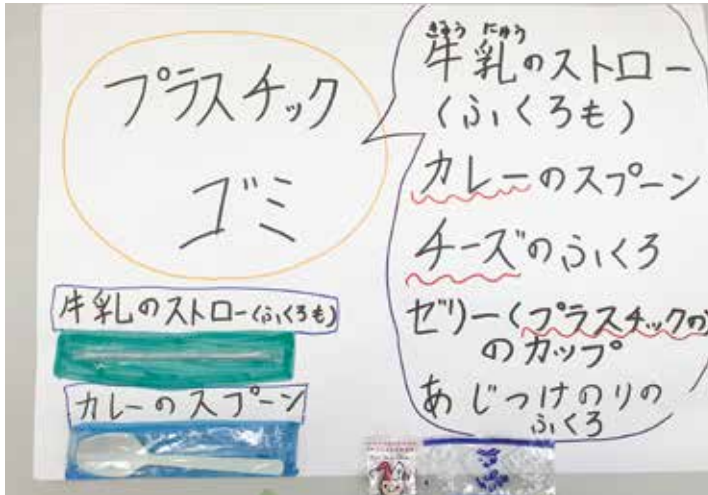 プラスチック
ゴミ
牛乳のストロー(ふくろも)
カレーのスプーン
ぎゅうにゅう
牛乳のストロー
(ふくろも)
カレーのスプーン
チーズのふくろ
ゼリー(プラスチックの)
のカップ
あじつけのりの
ふくろ